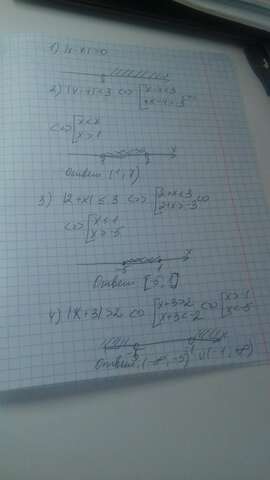 1) |x-4|>0
2) |x-4|<3 <=> [x-4<3
x-4>-3
<=> [x<7
x>1
x
Ответ: (1, 7)
3) |2+x| ≤ 3 <=> [2+x≤3 <=>
2+x≥-3
<=> [x≤1
x≥-5
x
-5 1
Ответ: [-5, 1]
4) |x+3|>2 <=> [x+3>2 <=> [x>-1
x+3<-2 x<-5
Ответ: (-∞, -5) ∪ (-1, +∞)